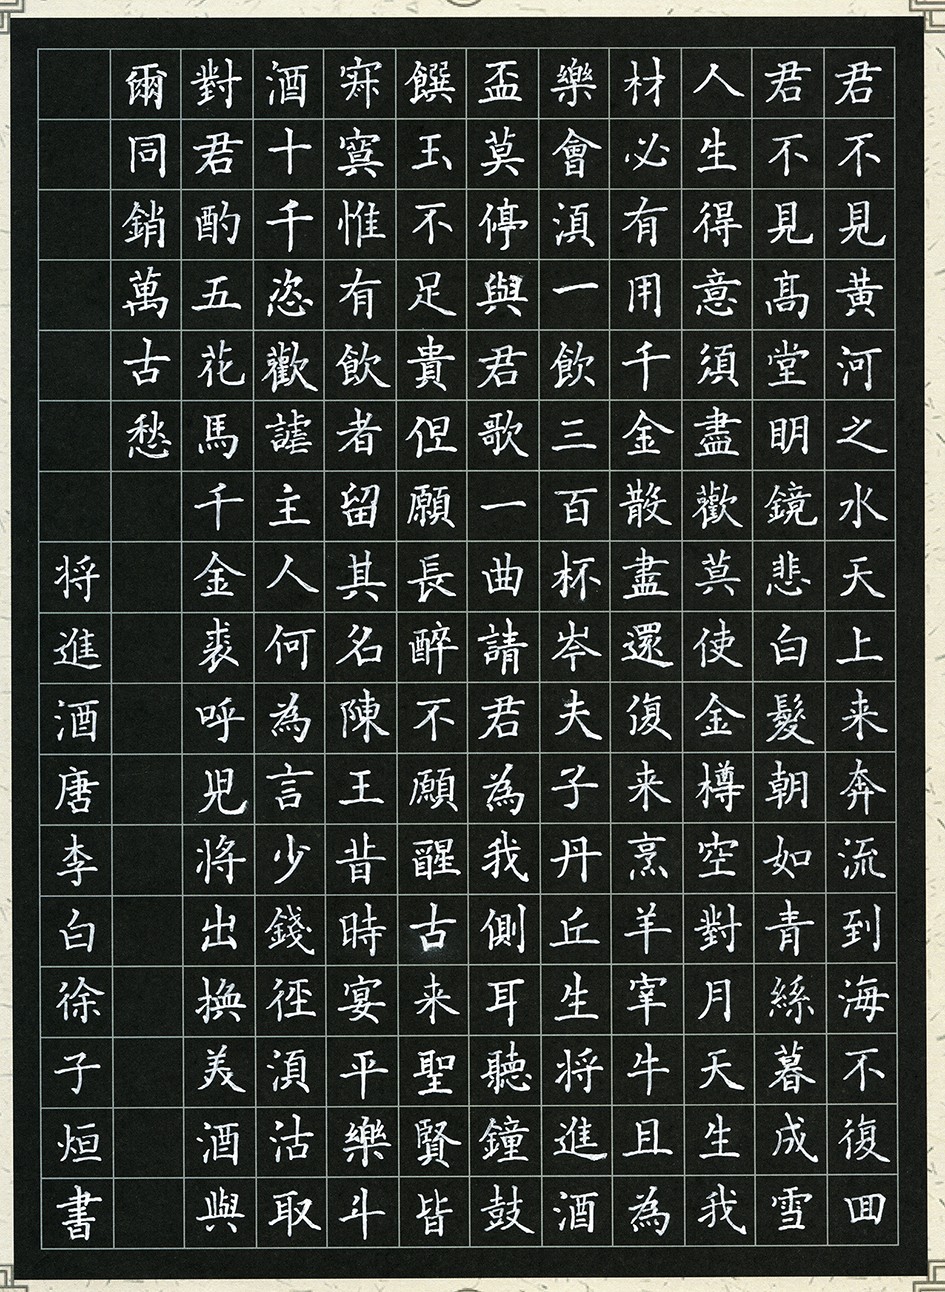 君不見黃河之水天上来奔流到海不復回
君不見高堂明鏡悲白髮朝如青絲暮成雪
人生得意須盡歡莫使金樽空對月天生我
材必有用千金散盡還復来烹羊宰牛且為
樂會湏一飲三百杯岑夫子丹丘生将進酒
盃莫停與君歌一曲請君為我側耳聽鐘鼓
饌玉不足貴但願長醉不願醒古来聖賢皆
寂寞惟有飲者留其名陳王昔時宴平樂斗
酒十千恣歡謔主人何為言少錢徑湏沽取
對君酌五花馬千金裘呼児將出換美酒與
爾同銷萬古愁
将進酒唐李白徐子烜書